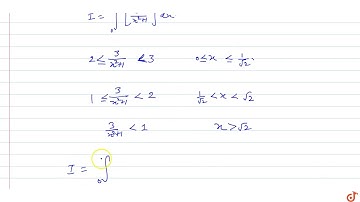 I = ∫₀ [3/(x²+1)] dx
2 ≤ 3/(x²+1) < 3    0 ≤ x ≤ 1/√2
1 ≤ 3/(x²+1) < 2    1/√2 < x < √2
3/(x²+1) < 1    x > √2
I = ∫₀
doubtnut